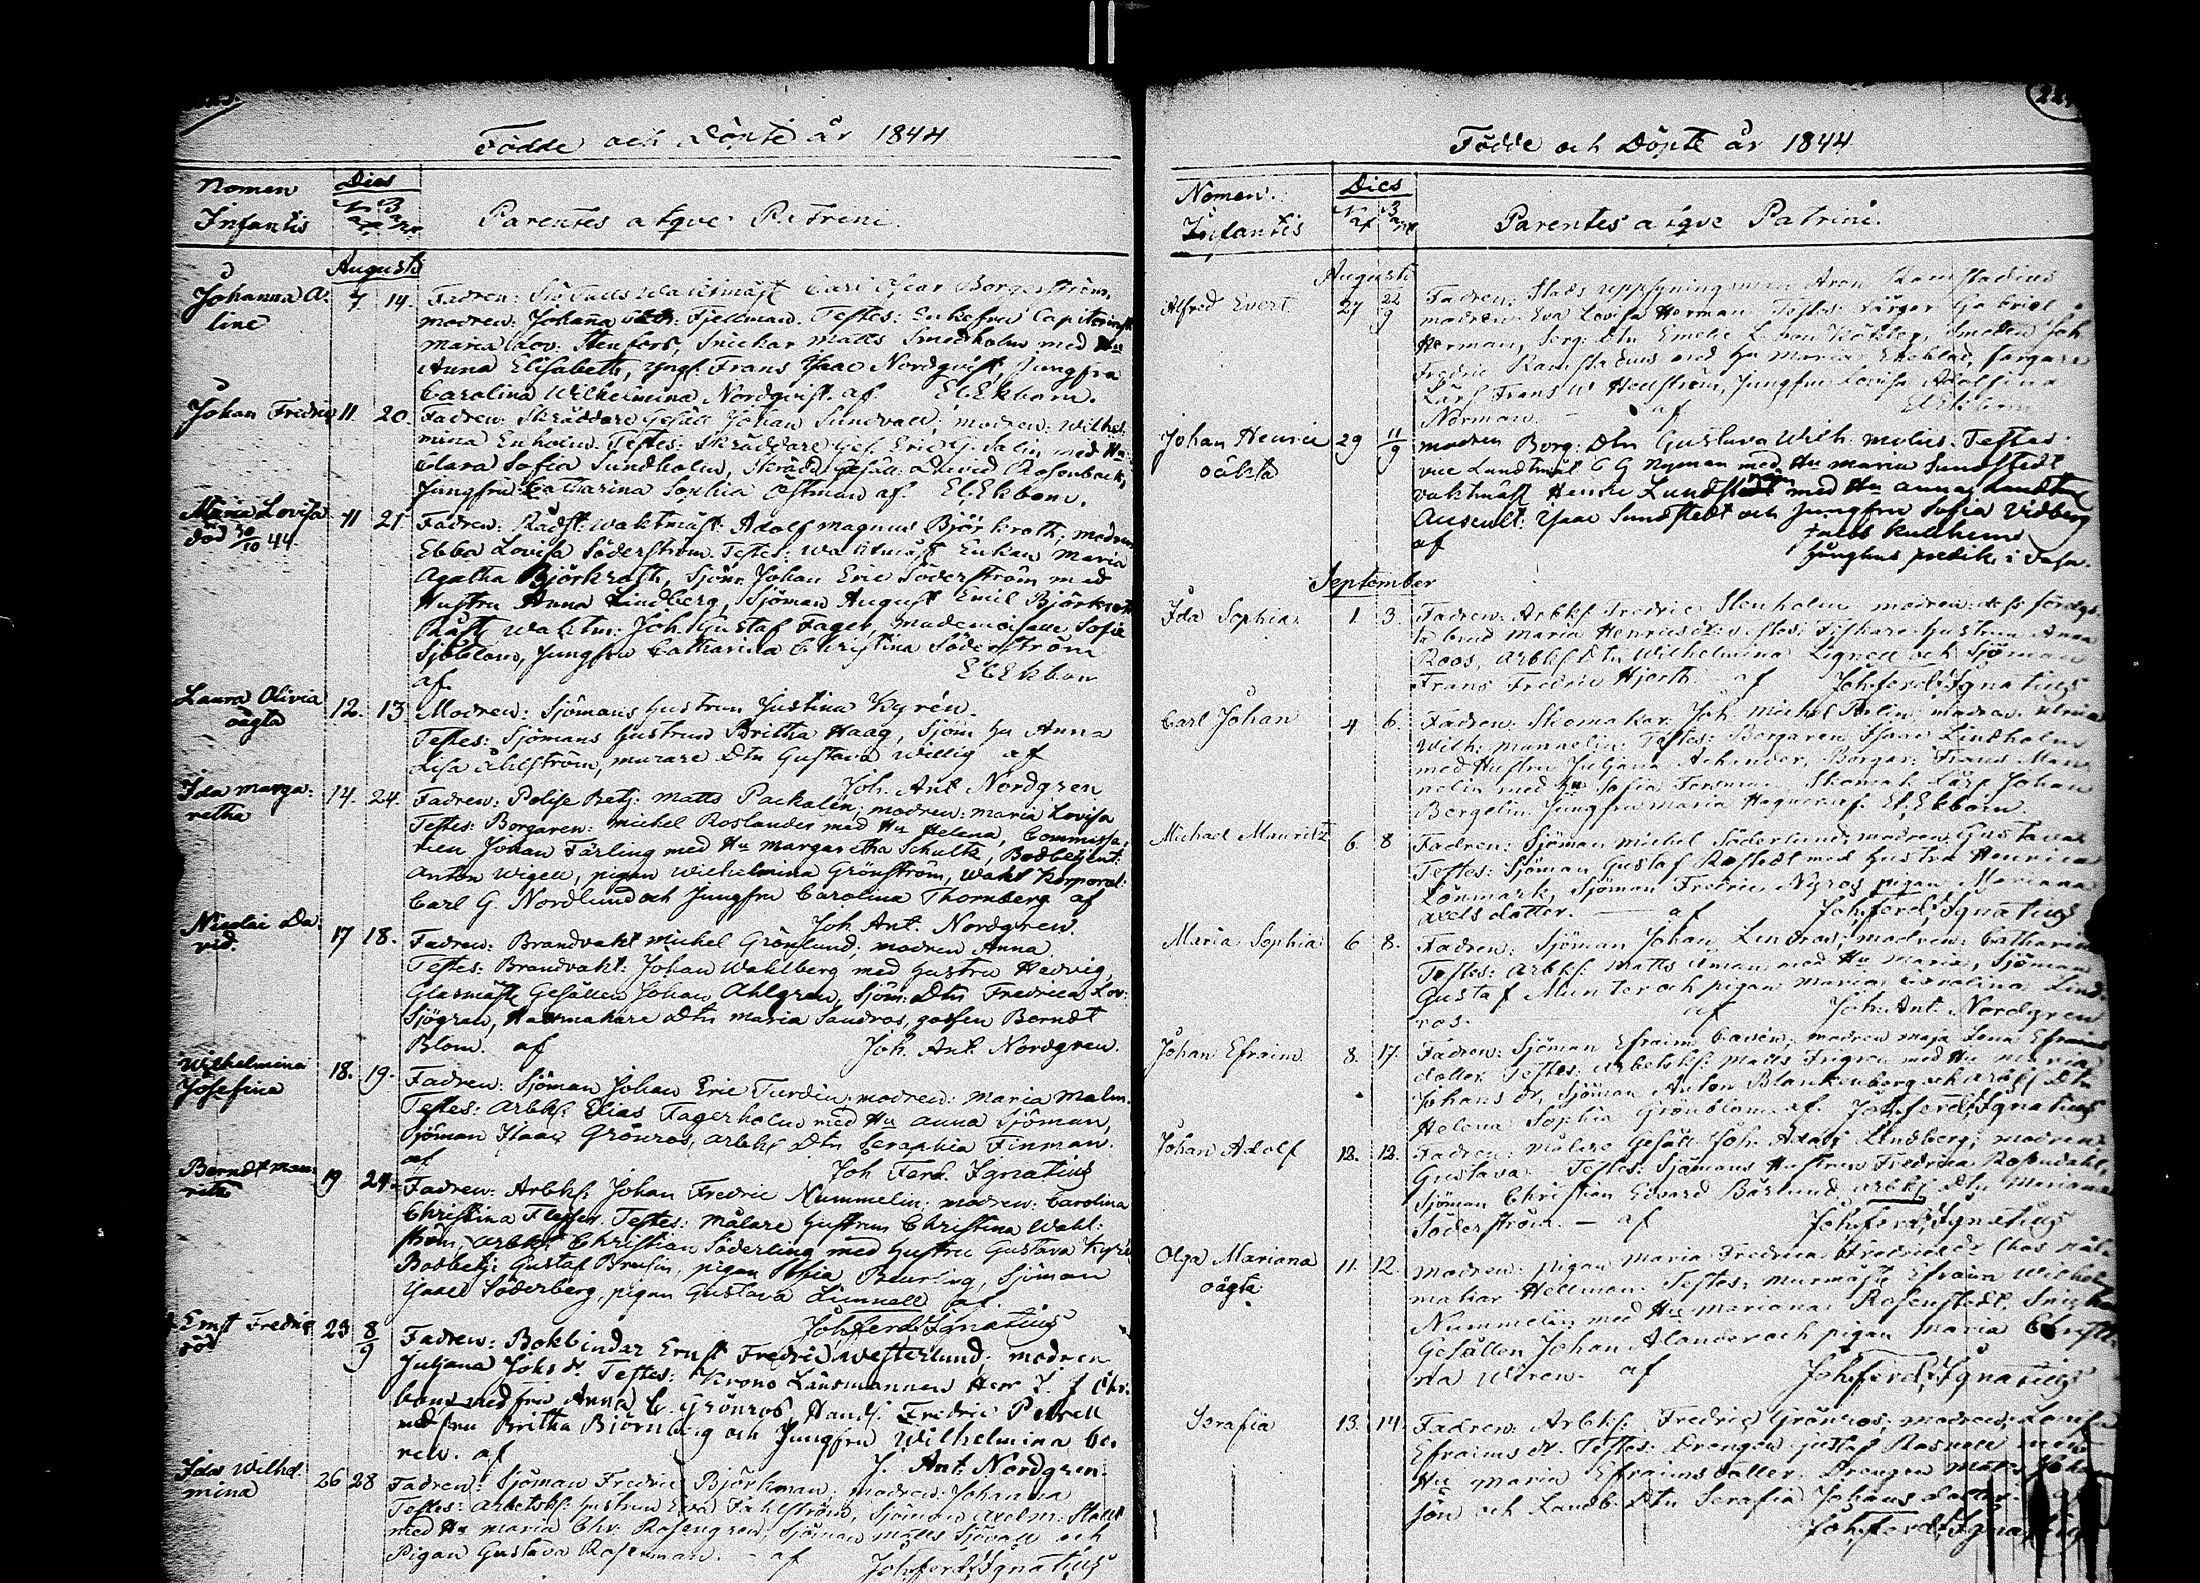 Födde och Döpte år 1844
Nomen Infantis
Dies
Nat. Bapt.
Parentes atqve Patrini.
Augusti
Johanna A:
line
7. 14. Fadren: Carl Borgström,
modren: Johanna Fjellman. Testes: Enkefru
Maria Lov. Stenfors, Snickar Matts Smedholm med Hu
Anna Elisabeth, yngl. Frans Isaac Nordqvist, Jungfru
Carolina Wilhelmina Nordqvist. af El. Ekbom.
Johan Fredric 11. 20. Fadren: Skräddare Gesäll Johan Sundvall; modren: Wilhel
mina Enholm. Testes: Skräddare Ges. Eric G. Salin med Hu
Clara Sofia Sundholm, Skrädd. Gesäll David Rosenback,
Jungfru Catharina Sophia Östman af. El. Ekbom.
Maria Lovisa
död 30/10 44.
11 21. Fadren: Rådst. Waktmäst. Adolf Magnus Björkroth, modren
Ebba Lovisa Söderström. Testes: Waktmäst. Enkan Maria
Agatha Björkroth, Sjöm. Johan Eric Söderström med
Hustru Anna Lindberg, Sjöman August Emil Björkroth
Rådst. Waktm. Joh. Gustaf Fager, Mademoiselle Sofie
Sjöblom, Jungfru Catharina Christina Söderström
af El. Ekbom
Laura Olivia
oägta
12. 13 Modren: Sjömans hustrun Justina Kyrén.
Testes: Sjömans hustrun Britha Haag, Sjöm. Hu Anna
Lisa Åhlström, murare Dtn Gustava Willig af
Joh. Ant. Nordgren
Ida Marga:
retha
14. 24. Fadren: Polise Betj: Matts Packalén; modren: Maria Lovisa
Testes: Borgaren: Michel Roslander med Hu Helena, Commissa:
rien Johan Färling med Hu Margaretha Schultz, Bodbetjent:
Anton Wigell, pigan Wilhelmina Grönström, Wakt Korporal:
Carl G. Nordlund och Jungfru Carolina Thornberg af
Joh. Ant. Nordgren.
Nicolai Da:
vid.
17 18. Fadren: Brandvakt Michel Grönlund; modren Anna.
Testes: Brandvakt: Johan Wahlberg med hustru Hedvig,
Glasmäst. Gesällen Johan Ahlgren, Sjöm: Dtn Fredrica Lov:
Sjögren, Dtn Maria Sandros, gossen Berndt
Blom. af Joh. Ant. Nordgren.
Wilhelmina
Josefina
18. 19. Fadren: Sjöman Johan Eric Turdin; modren: Maria Malm.
Testes: Arbks: Elias Fagerholm med Hu Anna Sjöman,
Sjöman Isaac Grönros, arbks Dtn Seraphia Finman.
af Joh. Ferd. Ignatius
Berndt Mau:
ritz
19 24. Fadren: Arbks: Johan Fredric Nummelin; modren: Carolina
Christina Testes: Målare hustrun Christina Wahl:
ström, arbks: Christian Söderling med hustru Gustava Kyrén
Bodbetj: Gustaf pigan Beurling, Sjöman
Söderberg, pigan Gustava Linnell af.
Joh. Ferd. Ignatius
Ernst Fredric
död
23 8/9 Fadren: Bokbindar Ernst Fredric Westerlund; modren
Juljana Johs dr. Testes: Krono Länsmannen Herr
med fru Anna C. Grönros, Hands: Fredric Petrell
med fru Britha Björnberg och Jungfru Wilhelmina
af J. Ant: Nordgren.
Ida Wilhel
mina
26 28 Fadren: Sjöman Fredric Björkman; modren: Johanna
Testes: Arbetsk: hustrun Eva Fahlström, Sjöman Axel M.
med Hu Maria Chr. Rosengren, Sjöman Matts Sjövall och
Pigan Gustava Rosenman. af Joh. Ferd. Ignatius
Födde och Döpte år 1844
Nomen Infantis
Dies
Nat Bapt
Parentes atqve Patrini.
Augusti
Alfred Evert 27 22/9 Fadren: Stads uppsyningsman Aron Ramstadius
modren: Eva Lovisa Herman Testes: Färgar Gabriel
Herman, Borg: Dtn Emelie Smeden Joh
Fredric Ramstadius med Hu Maria Ekeblad, färgare
Lärl. Frans W Hellström, Jungfru Lovisa Adolfina
Norman. af El. Ekbom
Johan Henric
oäkta
29 11/9 modren Borg: Dtn Gustava Wilh. Testes.
vice Landtmät. C G Nyman med Hu Maria Sundstedt
vaktmäst. Henric Lundstedt med Hu Anna
Auscult: Isaac Sundstedt och Jungfru Sofia Vidberg
af
September
Ida Sophia 1. 3. Fadren: Arbks Fredric Stenholm modren:
brud Maria Henriks dr. Testes: Fiskare hustrun Anna
Roos, Arbks Dtn Wilhelmina Lignell och Sjöman
Frans Fredric Hjorth. af Joh. Ferd. Ignatius
Carl Johan 4 6. Fadren: Skomakar: Joh. Michel modren: Ulrica
Wilh. Mannelin. Testes: Borgaren Isaac Lindholm
med Hustru Juljana Achander, Borgar: Frans Man
nelin med Hu Sofia Skomak. Lärl. Johan
Bergelin, Jungfru Maria Hagner af. El. Ekbom
Michael Mauritz 6 8 Fadren: Sjöman Michel Söderlund; modren: Gustava
Testes: Sjöman Gustaf Rostedt med hustru Henrica
Lönmark, Sjöman Fredric Nyros, pigan Mariana
Axels dotter. af Joh. Ferd. Ignatius
Maria Sophia 6 8. Fadren: Sjöman Johan Lindros; modren: Catharina
Testes: Arbks: Matts med Hu Maria, Sjöman
Gustaf Munter och pigan Maria Carolina Lind:
ros. af Joh. Ant. Nordgren
Johan Efraim 8. 17. Fadren: Sjöman Efraim modren Maja Lena Efraims
dotter. Testes: Arbetsk: Matts med Hu Maria
Johans dr, Sjöman Anton Blankenberg och Arbks Dtn
Helena Sophia Grönblom. af. Joh. Ferd. Ignatius
Johan Adolf 12. 12. Fadren: Målare Gesäll Joh. Adolf Lindberg; modren:
Gustava. Testes: Sjömans Hustrun Fredrica Rosendahl,
Sjöman Christian Edvard Bärlund, arbks Dtn Mariana
Söderström. — af Joh. Ferd. Ignatius
Olga Mariana
oägta
11. 12. Modren: pigan Maria Fredrica Fredrics dr (hos
makar Hellman. Testes: Murmäst. Efraim Wilhelm
Nummelin med Hu Mariana Rosenstedt, Snickar
Gesällen Johan Alander och pigan Maria Christi
na Wiren. af Joh. Ferd. Ignatius
Serafia 13. 14. Fadren: Arbks: Fredric Grönros; modren: Lovisa
Efraims dr. Testes: Drengen Gustaf Rosnell med
Hu Maria Efraims dotter, Drengen Matts
son och Landb. Dtn Serafia Johans dotter.
Joh. Ferd. Ignatius